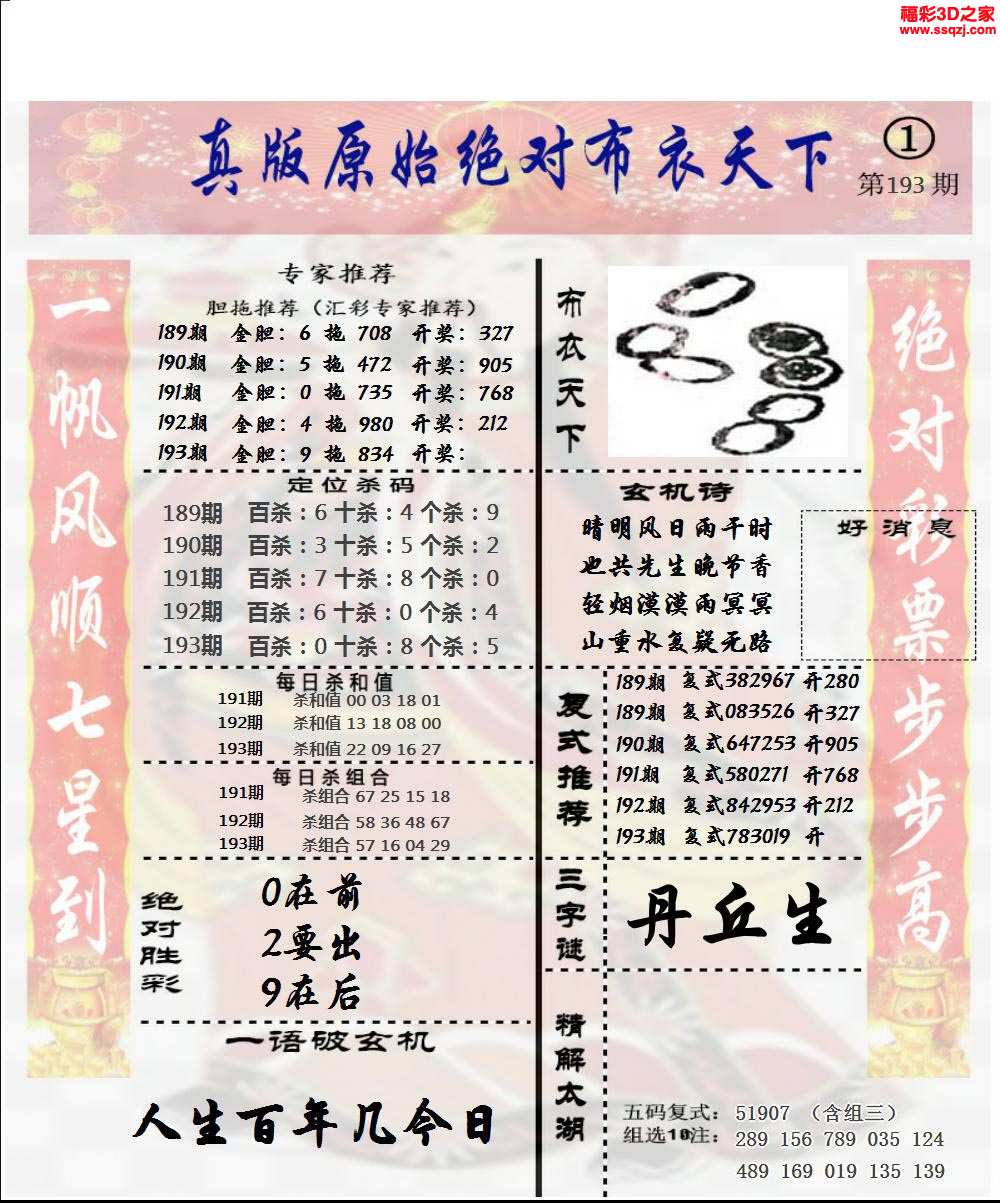 福彩3D之家
www.ssqzj.com
真版原始绝对布衣天下
①
第193期
一帆风顺七星到
专家推荐
胆拖推荐（汇彩专家推荐）
189期 金胆：6 拖 708 开奖：327
190期 金胆：5 拖 472 开奖：905
191期 金胆：0 拖 735 开奖：768
192期 金胆：4 拖 980 开奖：212
193期 金胆：9 拖 834 开奖：
定位杀码
189期 百杀：6 十杀：4 个杀：9
190期 百杀：3 十杀：5 个杀：2
191期 百杀：7 十杀：8 个杀：0
192期 百杀：6 十杀：0 个杀：4
193期 百杀：0 十杀：8 个杀：5
每日杀和值
191期 杀和值 00 03 18 01
192期 杀和值 13 18 08 00
193期 杀和值 22 09 16 27
每日杀组合
191期 杀组合 67 25 15 18
192期 杀组合 58 36 48 67
193期 杀组合 57 16 04 29
绝对胜彩
0在前
2要出
9在后
一语破玄机
人生百年几今日
布衣天下
玄机诗
晴明风日雨干时
也共先生晚节香
轻烟漠漠雨冥冥
山重水复疑无路
好消息
复式推荐
189期 复式382967 开280
189期 复式083526 开327
190期 复式647253 开905
191期 复式580271 开768
192期 复式842953 开212
193期 复式783019 开
三字谜
丹丘生
精解太湖
五码复式：51907 （含组三）
组选10注：289 156 789 035 124
489 169 019 135 139
绝对彩票步步高